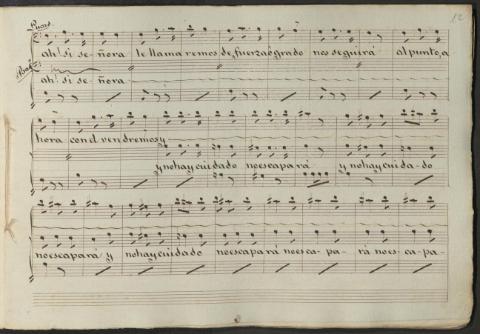 12
ah! si señora le llamaremos de fuerza ó grado nos seguirá al punto, a
ah! si señora
hora con el vendremos y
y no hay cuidado no escapará y no hay cuida-do
no escapara y no hay cuidado no escapará no esca-pa-rá no es-ca-pa-